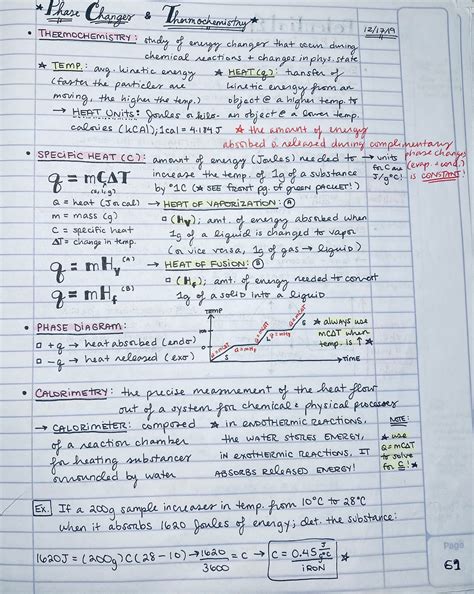 * Phase Changes & Thermochemistry *
12/17/19
• THERMOCHEMISTRY: study of energy changes that occur during
chemical reactions + changes in phys. state
* TEMP: avg. kinetic energy
(faster the particles are
moving, the higher the temp.)
* HEAT (q): transfer of
kinetic energy from an
object @ a higher temp. to
an object @ a lower temp.
→ HEAT UNITS: Joules or kilo-
calories (kCal); 1cal = 4.184 J
* the amount of energy
absorbed or released during complimentary
phase changes
(evap. + cond.)
is CONSTANT!
• SPECIFIC HEAT (C): amount of energy (Joules) needed to
increase the temp. of 1g of a substance
by 1°C (* SEE front pg. of green PACKET!)
→ units
for C are
J/g°C!
q = mCΔT
(s, l, g)
Q = heat (J or cal)
m = mass (g)
C = specific heat
ΔT = change in temp.
→ HEAT OF VAPORIZATION: Ⓐ
□ (Hv); amt. of energy absorbed when
1g of a liquid is changed to vapor
(or vice versa, 1g of gas → liquid)
q = mHv (A)
q = mHf (B)
→ HEAT OF FUSION: Ⓑ
□ (Hf); amt. of energy needed to convert
1g of a solid into a liquid
• PHASE DIAGRAM:
□ +q → heat absorbed (endo)
□ -q → heat released (exo)
TEMP
100
0
S
Q=mCΔT
Q=mHf
L
Q=mCΔT
Q=mHv
S
Q=mCΔT
→TIME
* always use
mCΔT when
temp. is ↑ *
• CALORIMETRY: the precise measurement of the heat flow
out of a system for chemical + physical processes
→ CALORIMETER: composed
of a reaction chamber
for heating substances
surrounded by water
* in endothermic reactions,
the WATER STORES ENERGY,
in exothermic reactions, IT
ABSORBS RELEASED ENERGY!
NOTE:
* use
Q = mCΔT
to solve
for C! *
Ex. If a 200g sample increases in temp. from 10°C to 28°C
when it absorbs 1620 Joules of energy; det. the substance:
1620J = (200g)C(28-10) → 1620/3600 = C → C = 0.45 J/g°C *
IRON
Page
69